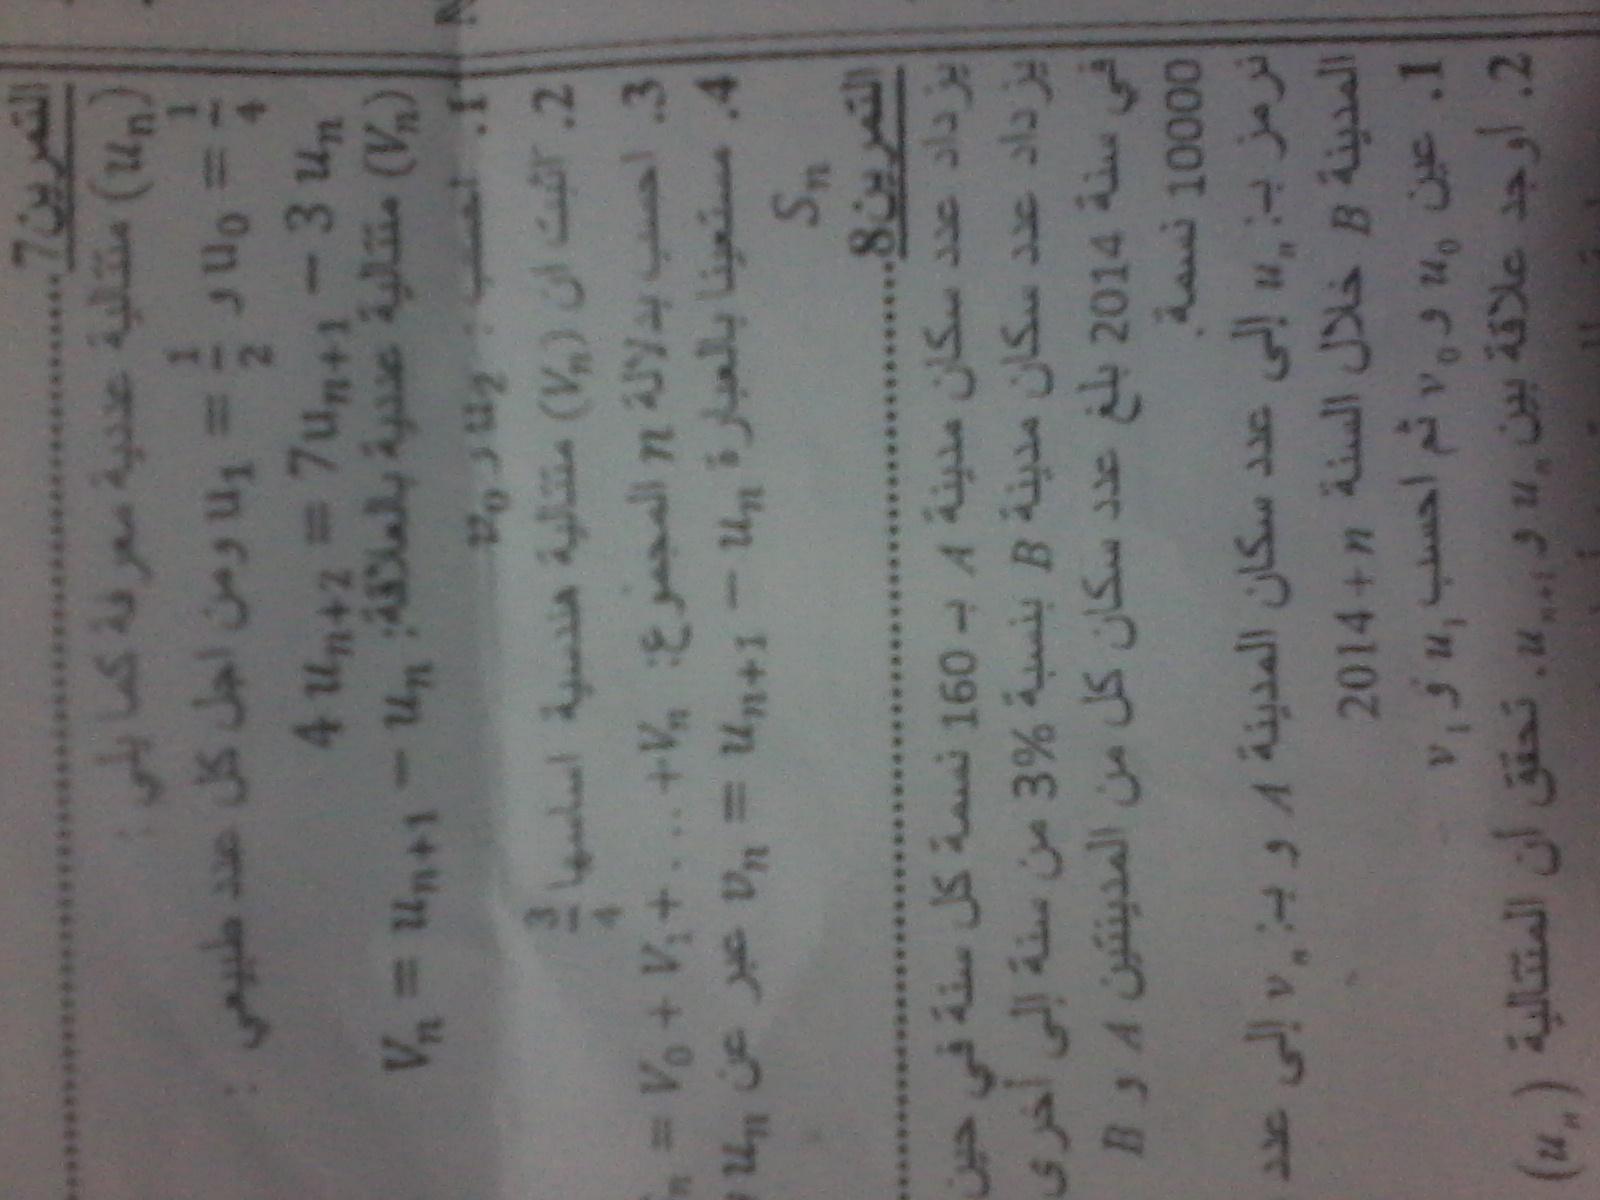 التمرين7
(uₙ) متتالية عددية معرفة كما يلي :
u₀ = 1/4 و u₁ = 1/2 ومن اجل كل عدد طبيعي :
4 uₙ₊₂ = 7uₙ₊₁ − 3 uₙ
(Vₙ) متتالية عددية بالعلاقة: Vₙ = uₙ₊₁ − uₙ
1. احسب : u₂ و v₀
2. اثبت ان (Vₙ) متتالية هندسية اساسها 3/4
3. احسب بدلالة n المجموع: ₙ = V₀ + V₁+ . . . +Vₙ
4. مستعينا بالعبارة vₙ = uₙ₊₁ − uₙ عبر عن uₙ
Sₙ
التمرين8
يزداد عدد سكان مدينة A بـ 160 نسمة كل سنة في حين
يزداد عدد سكان مدينة B بنسبة 3% من سنة إلى أخرى
في سنة 2014 بلغ عدد سكان كل من المدينتين A و B
10000 نسمة.
نرمز بـ: uₙ إلى عدد سكان المدينة A و بـ: vₙ إلى عدد
المدينة B خلال السنة 2014+n
1. عين u₀ و v₀ ثم احسب u₁ و v₁
2. أوجد علاقة بين uₙ و uₙ₊₁. تحقق أن المتتالية (uₙ)